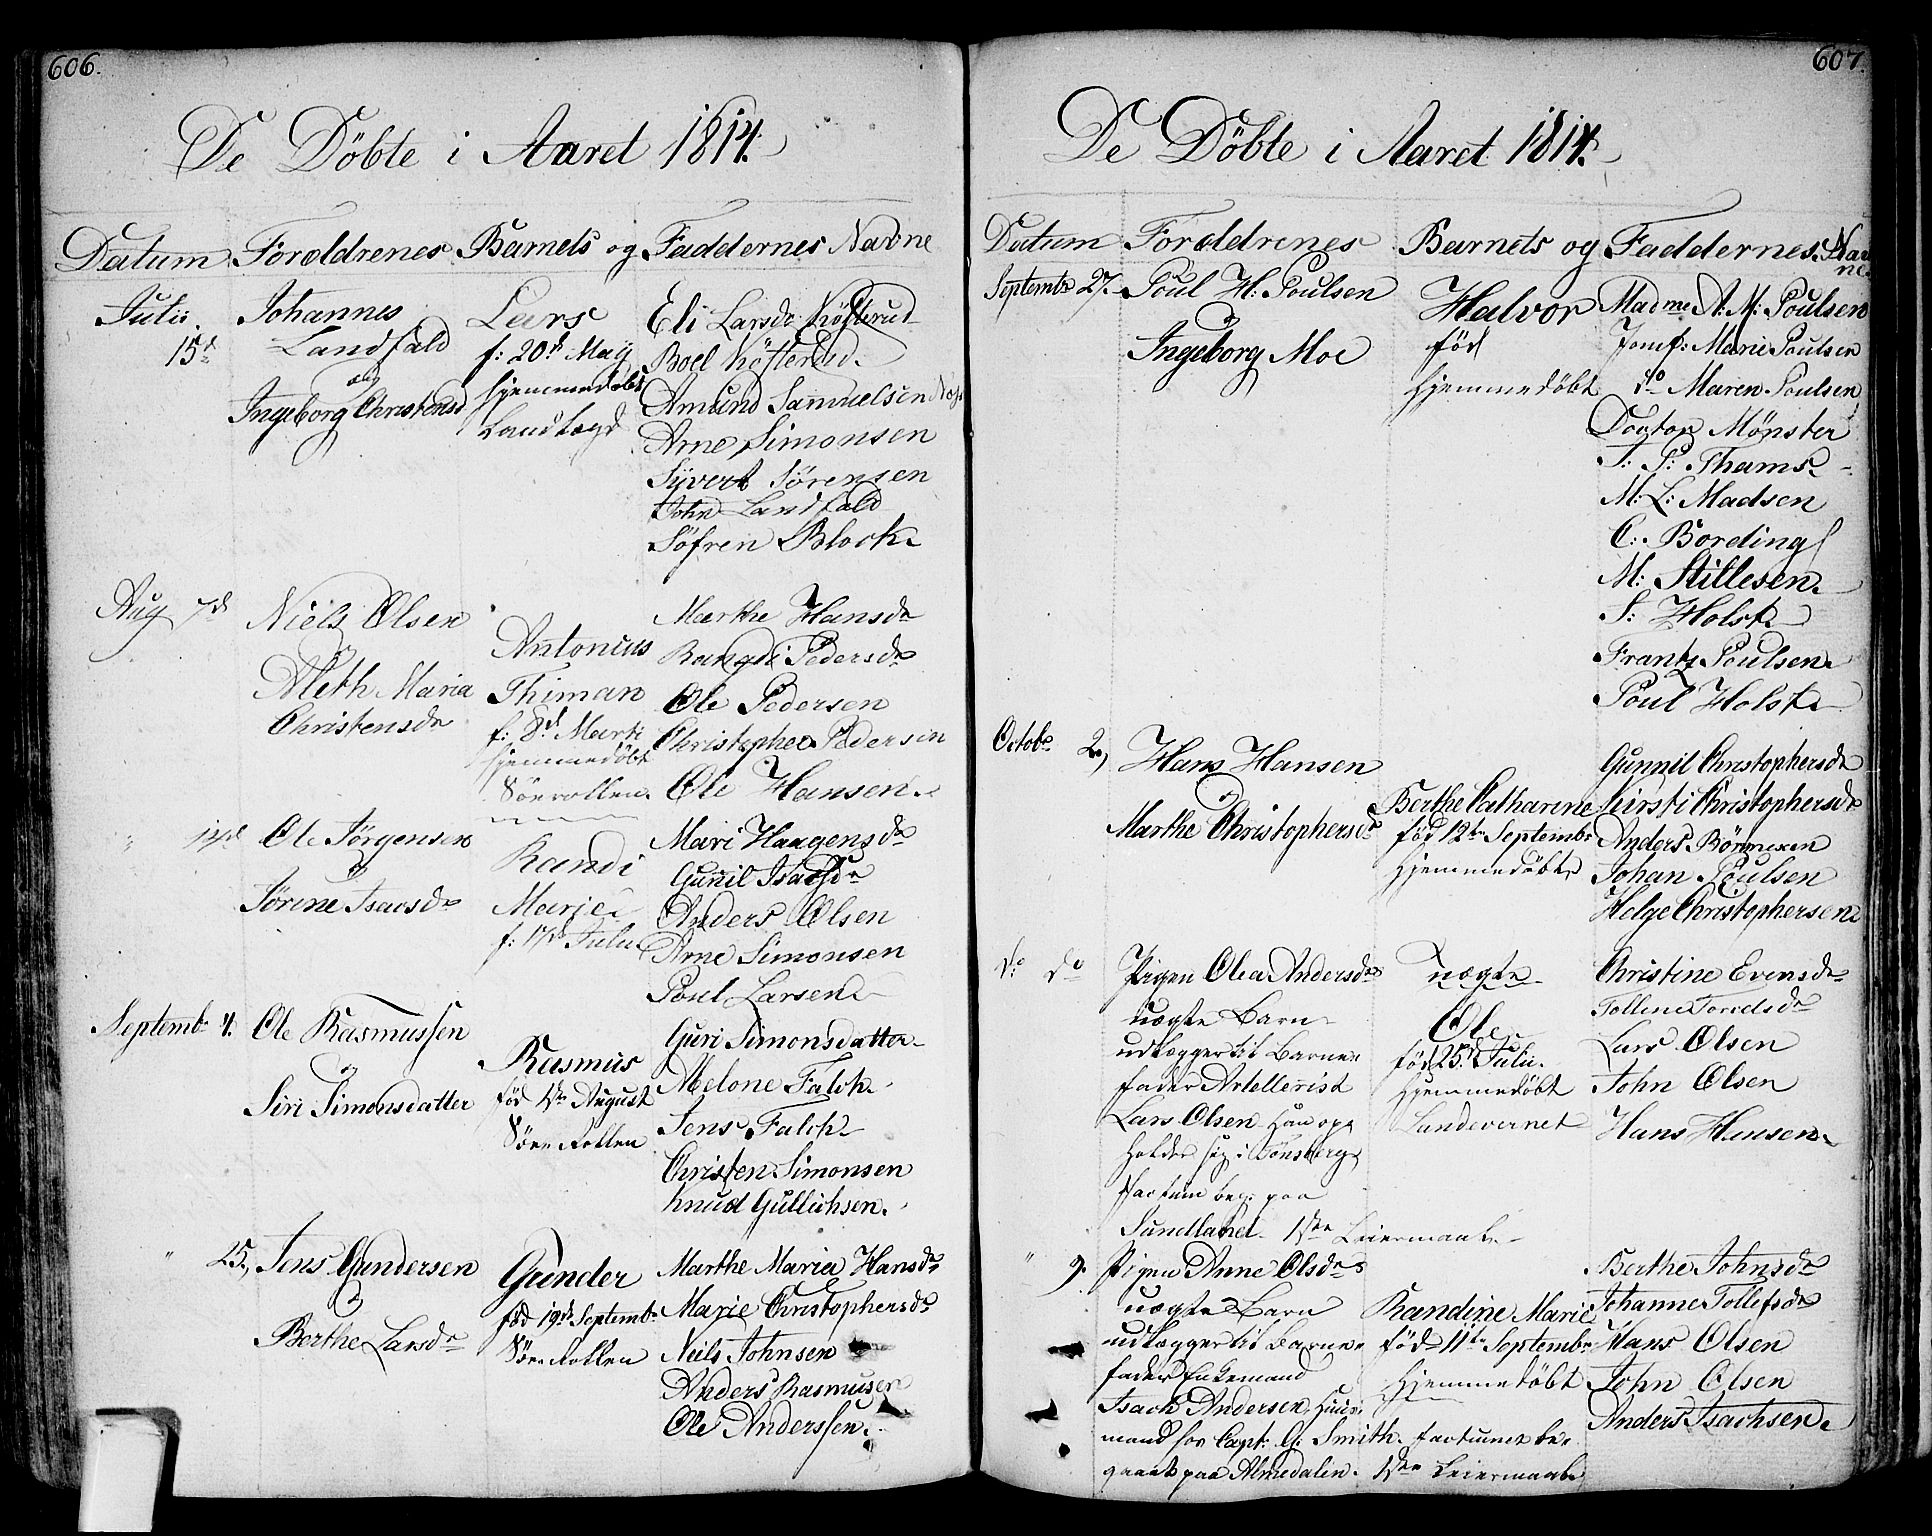 606.
De Döbte i Aaret 1814.
Datum Foroldrenes Barnets og Faddernes Navne
Julii 15d
Johannes
Landfald
og
Ingeborg Christensd
Lars
f: 20d May
hjemmedöbt
Landtægd
Eli Larsdr Köfterud
Boel Köfterud.
Amund Samuelsen
Arne Simonsen
Syvert Sörensen
John Landfald
Söfren Block.
Aug 7d
Niels Olsen
Aleth Maria
Christensdr
Antonius
Thiman
f: 8d Marti
hjemmedöbt
Söerollen.
Marthe Hansdr
Rangdi Pedersdr
Ole Pedersen
Christopher Pedersen
Ole Hansen.
" 14d
Ole Jörgensen
&
Jörine Isacsdr
Randi
Marie
f: 17d Julii
Mari Haagensdr
Gunil Isacsdr
Anders Olsen
Arne Simonsen
Poul Larsen
Septembr 4.
Ole Rasmussen
og
Siri Simonsdatter
Rasmus
föd 1ste August
Söe Rollen
Guri Simonsdatter
Melone Falch
Jens Falch
Christen Simonsen
Knud Gullichsen.
" 25.
Jens Gundersen
&
Berthe Larsdr
Gunder
föd 19de Septembr
Söe Rollen
Marthe Maria Hansdr
Marie Christophersdr
Neils Johnsen
Anders Rasmusen
Ole Anderssen.
607.
De Döbte i Aaret 1814.
Datum Foroldrenes Barnets og Faddernes Navne
Septembr 27.
Poul H: Poulsen
&
Ingeborg Moe
Halvor
föd
hjemmedöbt
Madme A: M: Poulsen
Jomf: Marie Poulsen
do Maren Poulsen
Doctor Mönster
T: P: Thams
M: L: Madsen
C: Bording
M: Stillesen.
S: Holst
Frantz Poulsen.
Poul Holst
Octobr 2,
Hans Hansen
&
Marthe Christophersdr
Berthe Catharine
föd 12te Septembr
hjemmedöbt
Gunnil Christophersdr
Kirsti Christophersdr
Anders Börmexen
Johan Poulsen
Helge Christophersen
do do
Pigen Olea Andersdrs
uægte Barn
udlægger til Barne
fader Artellerist
Lars Olsen han op
holder sig i Tönsberg
Factum beg: paa
Sundlandet. 1ste Leiermaal
uægte
Ole
föd 25d Julii.
hjemmedöbt
Landevernet
Christine Evensdr
Tolline Torrelsdr
Lars Olsen
John Olsen
Hans Hansen
" 9.
Pigen Anne Olsdrs
uægte Barn
udlægger til Barne
fader Enkemand
Isach Andersen, Huus
mand hos Capt: G. Smith. factumet be
gaaet paa Almedalen. 1ste Leiermaal
Randine Marie
föd 11te Septembr
hjemmedöbt
Berthe Johnsdr
Johanne Tollefsdr
Hans Olsen
John Olsen
Anders Isachsen.